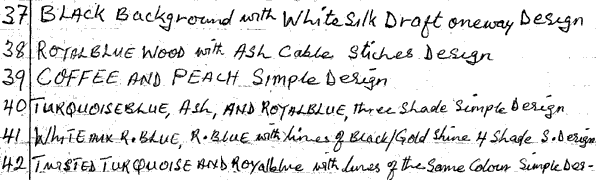 37 BLACK Background with White Silk Draft oneway Design
38 ROYALBLUE WOOD with ASH Cable Stiches Design
39 COFFEE AND PEACH Simple Design
40 TURQUOISEBLUE, Ash, AND ROYALBLUE, three Shade Simple Design
41 WHITE R. BLUE, R. BLUE with lines of Black/Gold Shine 4 Shade S. Design
42 TWISTED TURQUOISE AND Royalblue with lines of the Same Colour Simple Des-